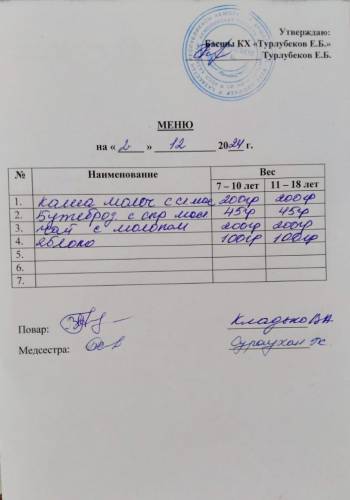 Утверждаю:
Басшы КХ «Турлубеков Е.Б.»
Турлубеков Е.Б.
МЕНЮ
на « 2 » 12 2024 г.
№ Наименование Вес
7 – 10 лет 11 – 18 лет
1. Каша молоч с слмас 200гр 200гр
2. Бутеброд с слр масл 45гр 45гр
3. Чай с молоком 200гр 200гр
4. Яблоко 100гр 100гр
5.
6.
7.
Повар: Кладько В.А.
Медсестра: